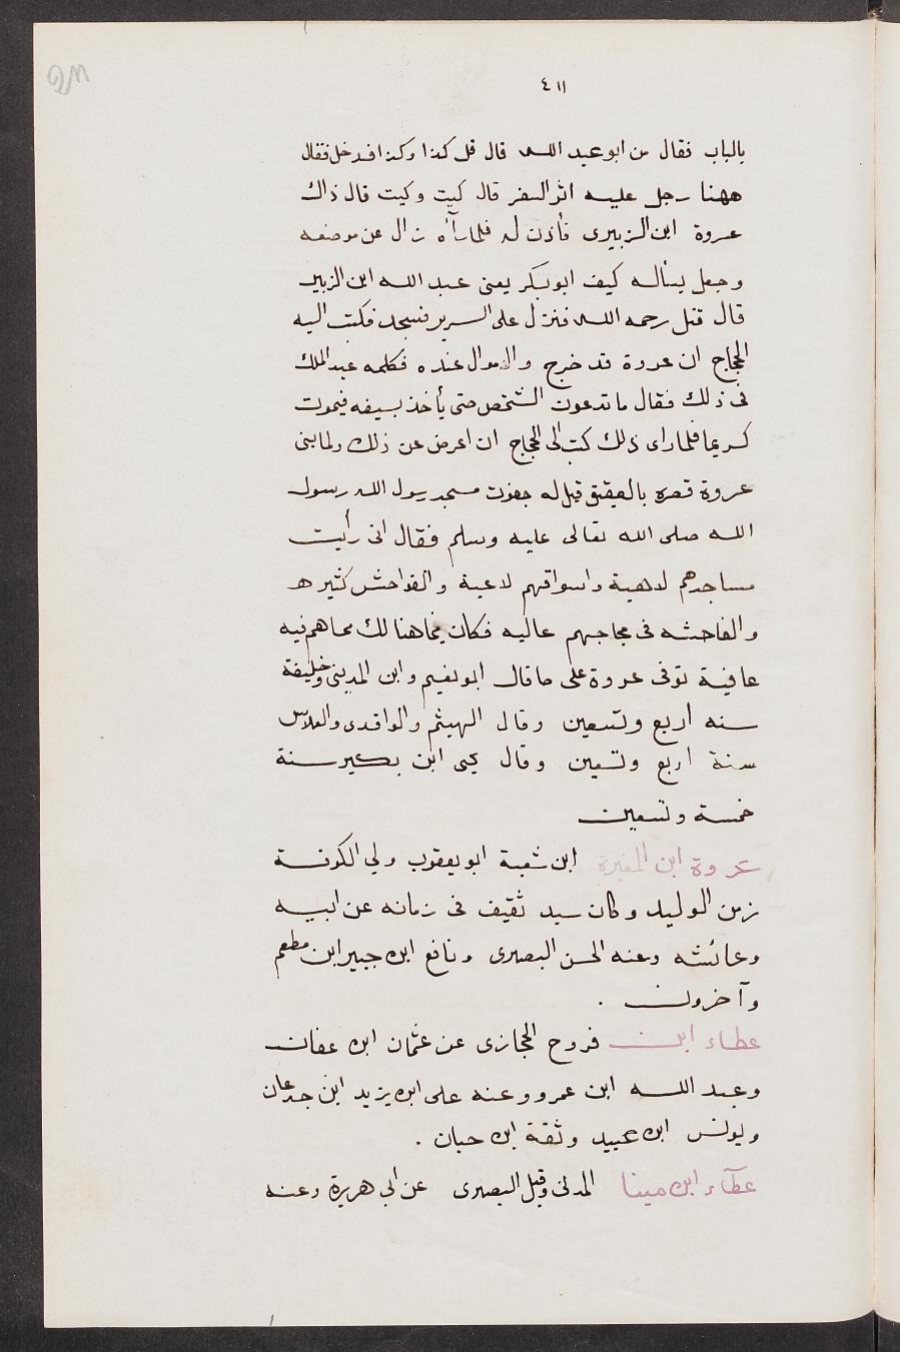 ٤١١
بالباب فقال من ابو عبد الله قال قل كذا وكذا فدخل فقال
ههنا رجل عليه اثر السفر قال كيت وكيت قال ذاك
عروة ابن الزبيرى فأذن له فلما رآه زال عن موضعه
وجعل يسأله كيف ابو بكر يعنى عبد الله ابن الزبير
قال قتل رحمه الله فنزل على السرير فسجد فكتب اليه
الحجاج ان عروة قد خرج والاموال عنده فكلمه عبد الملك
فى ذلك فقال ما تدعون الشخص حتى يأخذ بسيفه فيموت
كريما فلما راى ذلك كتب الى الحجاج ان اعرض عن ذلك ولما بنى
عروة قصره بالعقيق قيل له جفوت مسجد رسول الله رسول
الله صلى الله تعالى عليه وسلم فقال انى رأيت
مساجدهم لاهية واسواقهم لاغية والفواحش كثيره
والفاحشه فى فجاجهم عاليه فكان فيما هنالك مما هم فيه
عافية توفى عروة على ما قال ابو نعيم وابن المدينى وخليفة
سنه أربع وتسعين وقال الهيثم والواقدى والفلاس
سنة اربع وتسعين وقال يحيى ابن بكير سنة
خمسة وتسعين
عروة ابن المغيرة ابن شعبة ابو يعقوب ولي الكوفة
زمن الوليد وكان سيد ثقيف فى زمانه عن ابيه
وعائشه وعنه الحسن البصرى ونافع ابن جبير ابن مطعم
وآخرون .
عطاء ابن فروح الحجازى عن عثمان ابن عفان
وعبد الله ابن عمرو وعنه على ابن يزيد ابن جدعان
ويونس ابن عبيد وثقة ابن حبان .
عطآء ابن مينا المدنى وقيل البصرى عن ابى هريرة وعنه